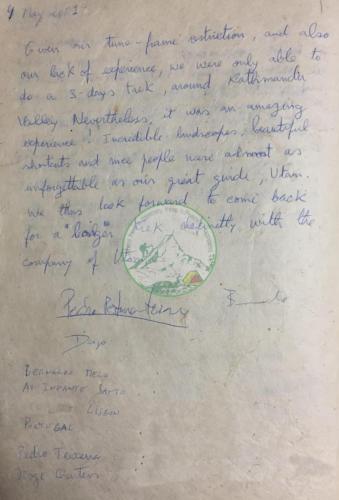 4 May 2001
Given our time-frame restriction, and also
our lack of experience, we were only able to
do a 3-days trek, around Kathmandu
Valley. Nevertheless, it was an amazing
experience! Incredible landscapes, beautiful
shortcuts and nice people were almost as
unforgettable as our great guide, Utam.
We thus look forward to come back
for a "longer" trek definetly with the
company of Utam
Diogo
BERNARDO MELO
AV INFANTE SANTO
LISBON
PORTUGAL
Pedro Teixeira